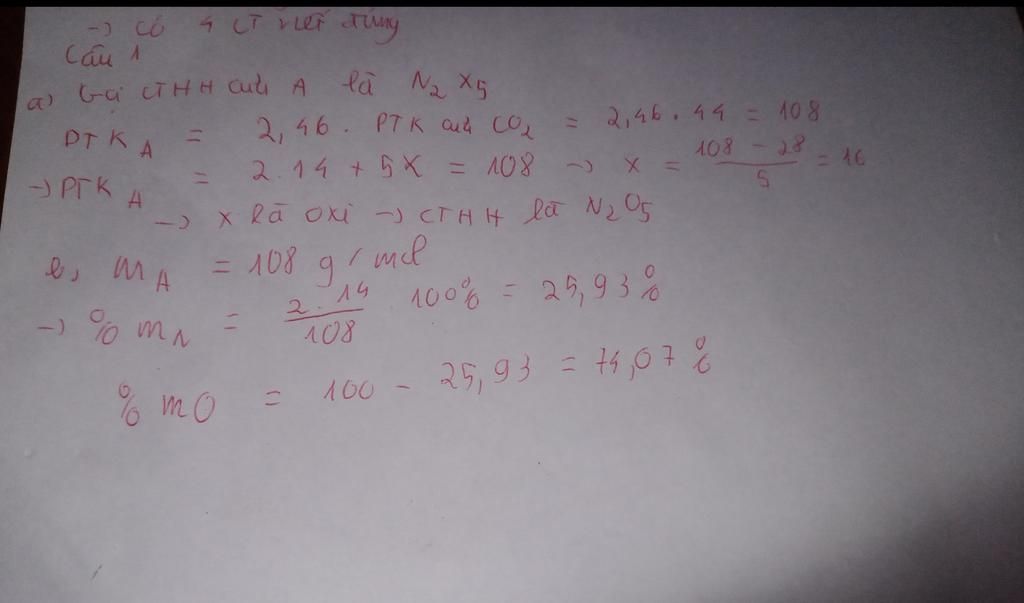 → Có 4 CT viết đúng
Câu 1
a) Gọi CTHH của A là N2X5
PTK A = 2,46. PTK của CO2 = 2,46.44 = 108
→ PTK A = 2.14 + 5X = 108 → X = (108 - 28)/5 = 16
→ X là oxi → CTHH là N2O5
b, MA = 108 g/mol
→ % mN = (2.14)/108 100% = 25,93%
% mO = 100 - 25,93 = 74,07%